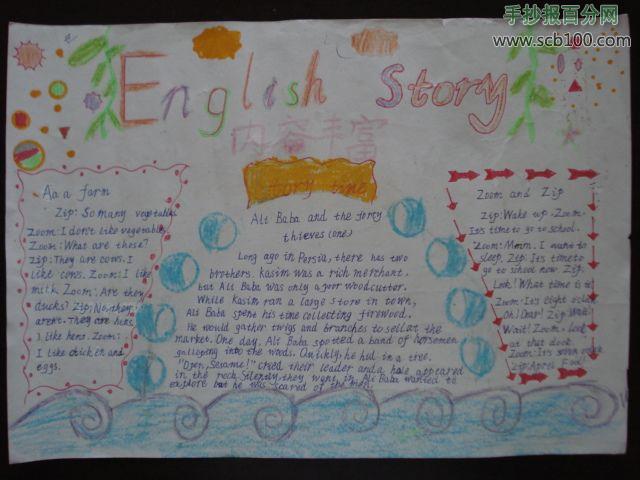 手抄报百分网
www.scb100.com
English Story
内容丰富
Story time
Aa a farm
Zip: So many vegetables
Zoom: I don't like vegetables
Zoom: What are those?
Zip: They are cows. I
like cows. Zoom: I like
milk Zoom: Are they
ducks? Zip: No, they
aren't. They are hens.
I like hens. Zoom:
I like chicken and
eggs.
Ali Baba and the forty
thieves (one)
Long ago in Persia, there has two
brothers. kasim was a rich merchant.
but Ali Baba was only a poor woodcutter.
While kasim ran a large store in town,
Ali Baba spene his time collecting firewood.
He would gather twigs and branches to sell at the
market. One day. Ali Baba spotted a band of horsemen
galloping into the woods. Quickly, he hid in a tree.
"Open, Sesame!" cried their leader and a hole appeared
in the rock Silently, they went in Ali Baba wanted to
explore but he was scared of the men.
Zoom and Zip
Zip: Wake up. Zoom.
It's time to go to school.
Zoom: Mmm. I want to
sleep. Zip: It's time to
go to school now Zip:
Look! What time is it
Zoom: It's eight o'clock
Oh! Dear! Zip Wait
Wait! Zoom: Look
at that clock
Zoom: It's seven
Zip: April Fool